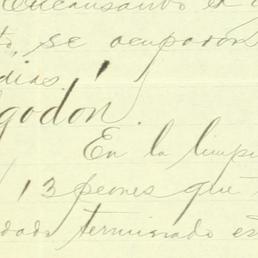 encausando el
to, se ocuparon
dias.
godón.
En la limpi
13 peones que
dado terminado es